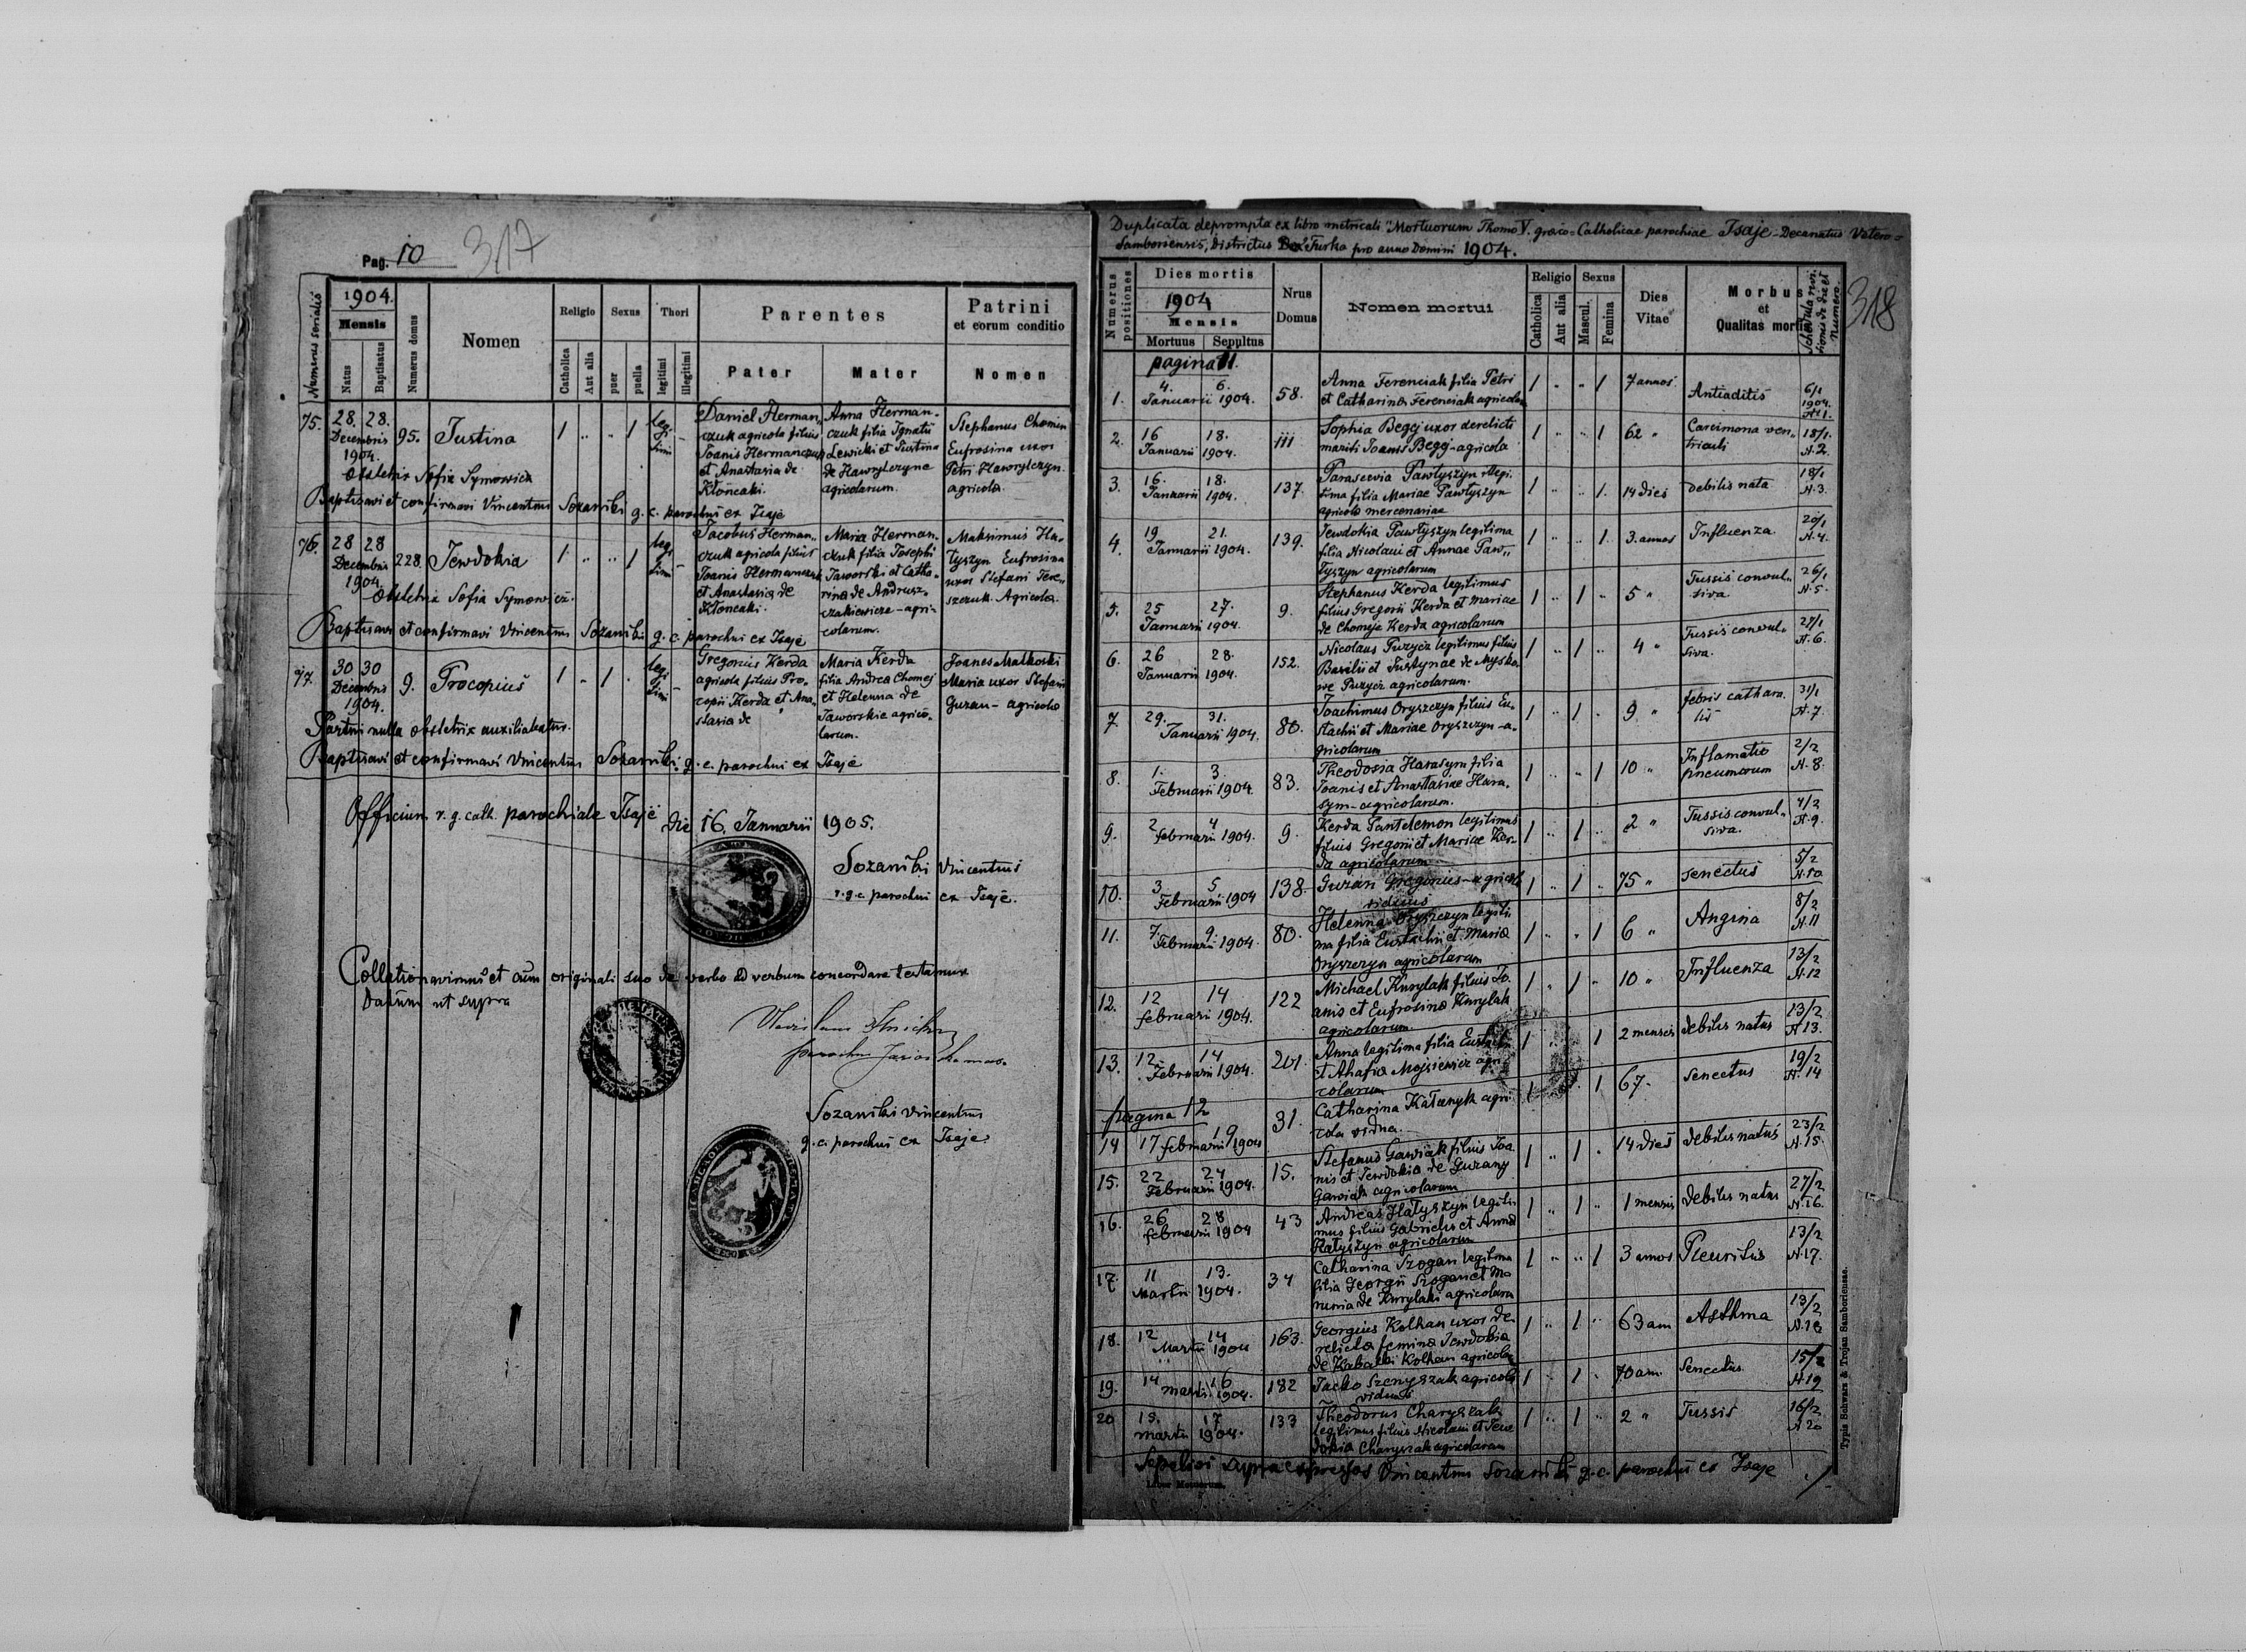 Pag. 10
317
Numerus serialis
1904.
Mensis
Natus
Baptisatus
Numerus domus
Nomen
Religio
Catholica
Aut alia
Sexus
puer
puella
Thori
legitimi
illegitimi
Parentes
Pater
Mater
Patrini
et eorum conditio
Nomen
75.
28. 28.
Decembris
1904.
95.
Justina
1 .. .. 1
legi
timi
Daniel Herman„
czuk agricola filius
Joanis Hermanczuk
et Anastasia de
Kłoncaki.
Anna Herman-
czuk filia Ignatii
Lewicki et Justina
de Hawrylczyne
agricolarum.
Stephanus Chomin
Eufrosina uxor
Petri Hawrylczyn.
agricola
Obstetrix Sofia Symowicz
Baptisavi et confirmavi Vincentius Sozański g. c. parochus ex Isaje
76.
28 28
Decembris
1904
228.
Jewdokia
1 .. .. 1
legi
timi
Jacobus Herman„
czuk agricola filius
Joanis Hermanczuk
et Anastasia de
Kłoncaki.
Maria Herman-
czuk filia Josephi
Jaworski et Catha-
rina de Andrusz-
czakiewicze - agri-
colarum.
Maksimus Ha-
tyszyn Eufrosina
uxor Stefani Fere„
szczuk. Agricola.
Obstetrix Sofia Symowicz.
Baptisavi et confirmavi Vincentius Sozański g. c. parochus ex Isaje
77
30 30
Decembris
1904.
9.
Procopius
1 .. 1 .
legi
timi
Gregorius Kerda
agricola filius Pro-
copii Kerda et Ana-
stasia de
Maria Kerda
filia Andrea Chomej
et Helenna de
Jaworskie agrico-
larum.
Joanes Malkoski
Maria uxor Stefani
Guzan - agricola
Partui nulla obstetrix auxiliabatur.
Baptisavi et confirmavi Vincentius Sozański g. c. parochus ex Isaje
Officium r. g. cath. parochiale Isaje die 16. Januarii 1905.
Sozański Vincentius
r. g. c parochus ex Isaje.
Collationavimus et cum originali suo de verbo ad verbum concordare testamur
Datum ut supra
Sozański Vincentius
g. c. parochus ex Isaje
Duplicata deprompta ex libro metricali "Mortuorum Thomo V. graeco-Catholicae parochiae Isaje - Decanatus Vetero-
Samborsensis, districtus Turka pro anno Domini 1904.
318
Numerus positiones
Dies mortis
1904
Mensis
Mortuus Sepultus
Nrus
Domus
Nomen mortui
Religio
Catholica
Aut alia
Sexus
Mascul.
Femina
Dies
Vitae
Morbus
et
Qualitas mortis
Schedula revi-
sionis de die et
Numero.
pagina 11.
1.
4. 6.
Januarii 1904.
58.
Anna Ferenciak filia Petri
et Catharina Ferenciak agricola
1 . .. 1
7 annos
Antiaditis
6/1
1904.
N 1.
2.
16 18.
Januarii 1904.
111
Sophia Begej uxor derelicti
mariti Joannis Begej - agricola
1 .. .. 1
62 "
Carcimona ven-
triculi
18/1.
N. 2.
3.
16. 18.
Januarii 1904.
137.
Parascevia Pawłyszyn illegi-
tima filia Mariae Pawłyszyn
agricola mercenariae
1 .. .. 1.
14 dies
debilis nata
18/1
N. 3.
4.
19 21.
Januarii 1904.
139.
Jewdokia Pawłyszyn legitima
filia Nicolaui et Annae Paw„
łyszyn agricolarum
1 .. .. 1.
3. annos
Influenza
20/1
N. 4.
5.
25 27.
Januarii 1904.
9.
Stephanus Kerda legitimus
filius Gregorii Kerda et Mariae
de Chomeja Kerda agricolarum
1 .. 1 ..
5 "
Tussis convul-
siva
26/1
N. 5.
6.
26 28.
Januarii 1904.
152.
Nicolaus Puzycz legitimus filius
Basilii et Justynae de Mysko-
we Puzycz agricolarum.
1 .. 1 .
4 "
Tussis convul-
siva.
27/1
N. 6.
7
29. 31.
Januarii 1904.
80.
Joachimus Oryszczyn filius Eu-
stachii et Mariae Oryszczyn -a-
gricolarum
1 .. 1 .
9 "
febris cathara-
lis
31/1
N. 7.
8.
1. 3.
Februarii 1904.
83.
Theodosia Harasym filia
Joanis et Anastasiae Hara-
sym - agricolarum.
1 .. .. 1
10 "
Inflamatio
pneumorum
2/2
N. 8.
9.
2 4
februarii 1904.
9.
Kerda Pantelemon legitimus
filius Gregorii et Mariae Ker-
da agricolarum
1 .. 1 ..
2 "
Tussis convul-
siva.
4/2
N. 9.
10.
3 5.
Februarii 1904
138.
Guzan Gregorius - agricola
viduus
1 .. 1 ..
75 "
senectus
5/2
N. 10.
11.
7. 9.
Februarii 1904.
80.
Helenna Oryszczyn legiti-
ma filia Eustachii et Maria
Oryszczyn agricolarum
1 .. .. 1
6 "
Angina
8/2
N. 11
12.
12 14
februarii 1904.
122
Michael Kurylak filius Jo-
anis et Eufrosina Kurylak
agricolarum
1 .. 1 ..
10 "
Influenza
13/2
N. 12
13.
12. 14
Februarii 1904.
201.
Anna legitima filia Eustachii
et Ahafia Mojsiewicz agri-
colarum
1 .. 1
2 menses
debilis natus
13/2
N 13.
pagina 12
14
17 19
februarii 1904
31.
Catharina Katanyk agri
cola vidua.
1 . 1
67.
Senectus
19/2
N. 14
15.
22 24
Februarii 1904.
15.
Stefanus Gawiak filius Joa
nis et Jewdokia de Guzany
Gawiak agricolarum
1 .. 1 .
14 dies
debilis natus
23/2
N. 15.
16.
26 28
februarii 1904
43
Andreas Hatyszyn legiti-
mus filius Gabrielis et Anna
Hatyszyn agricolarum
1 .. 1 ..
1 mensis
debilis natus
27/2
N. 16.
17.
11 13.
Martii 1904.
34
Catharina Szogan legitima
filia Georgii Szogan et Ma
de Kurylaki agricolarum
1 .. .. 1
3 annos
Pleuritis
13/2
N. 17.
18.
12 14
Martii 1904
163.
Georgius Kolhan uxor de-
relicta femina Jewdokia
de Kolhan agricola
1 .. 1 ..
63 ann
Asthma
13/2
N. 18
19.
14 16
martii 1904.
182
Jacko Szenyszak agricola
viduus
1 .. 1 .
70 ann
Senectus
15/2
N 19
20
15. 17
martii 1904.
133
Theodorus Charyszak
legitimus filius Nicolaui et Jew
dokia Charyszak agricolarum
1 .. 1 ..
2 "
Tussis
16/2
N 20
Sepelivi supra expressos Vincentius Sozański g. c. parochus ex Isaje
Liber Mortuorum.
Typis Schwarz & Trojan Samboriensae.